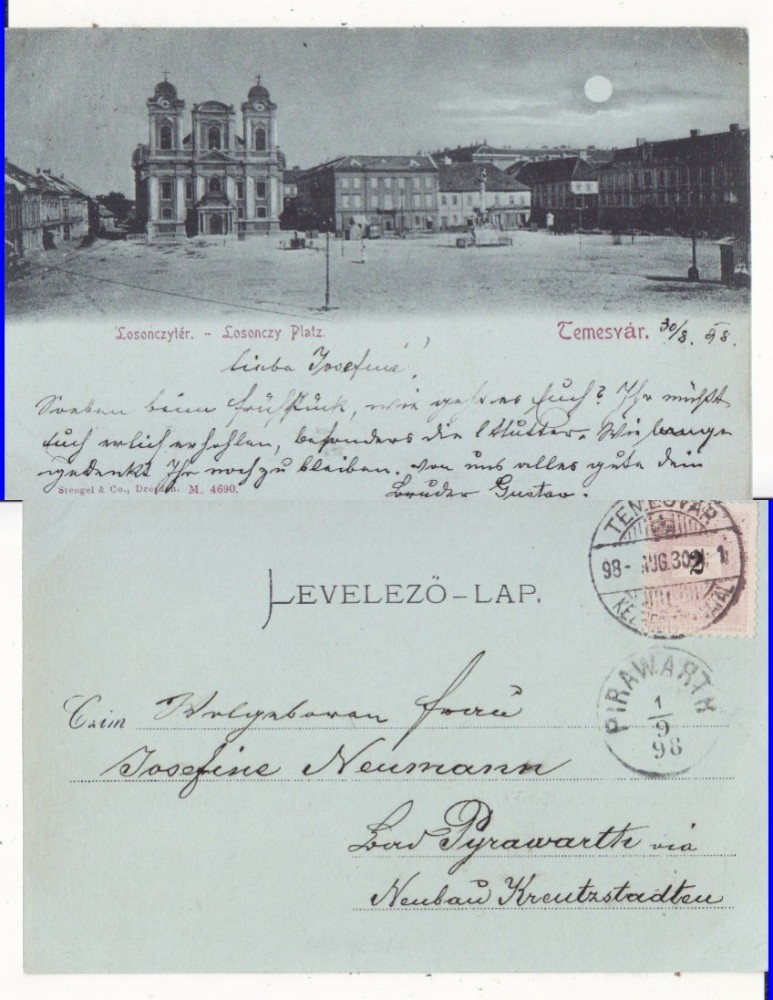 Losonczytér. - Losonczy Platz.
Temesvár. 30/8. 98.
Liebe Josefine!
Soeben beim Frühstück, wie geht es Euch? Ihr müßt
Euch erlich erhohlen, besonders die Mutter. Wie lange
gedenkt Ihr noch zu bleiben. Von uns alles gute dein
Stengel & Co., Dresden. M. 4690.
Bruder Gustav.
TEMESVÁR
98-AUG.30
2
LEVELEZŐ-LAP.
PIRAWARTH
1/9
98
Czim Wolgeboren Frau
Josefine Neumann
Bad Pyrawarth via
Neubau Kreutzstadten